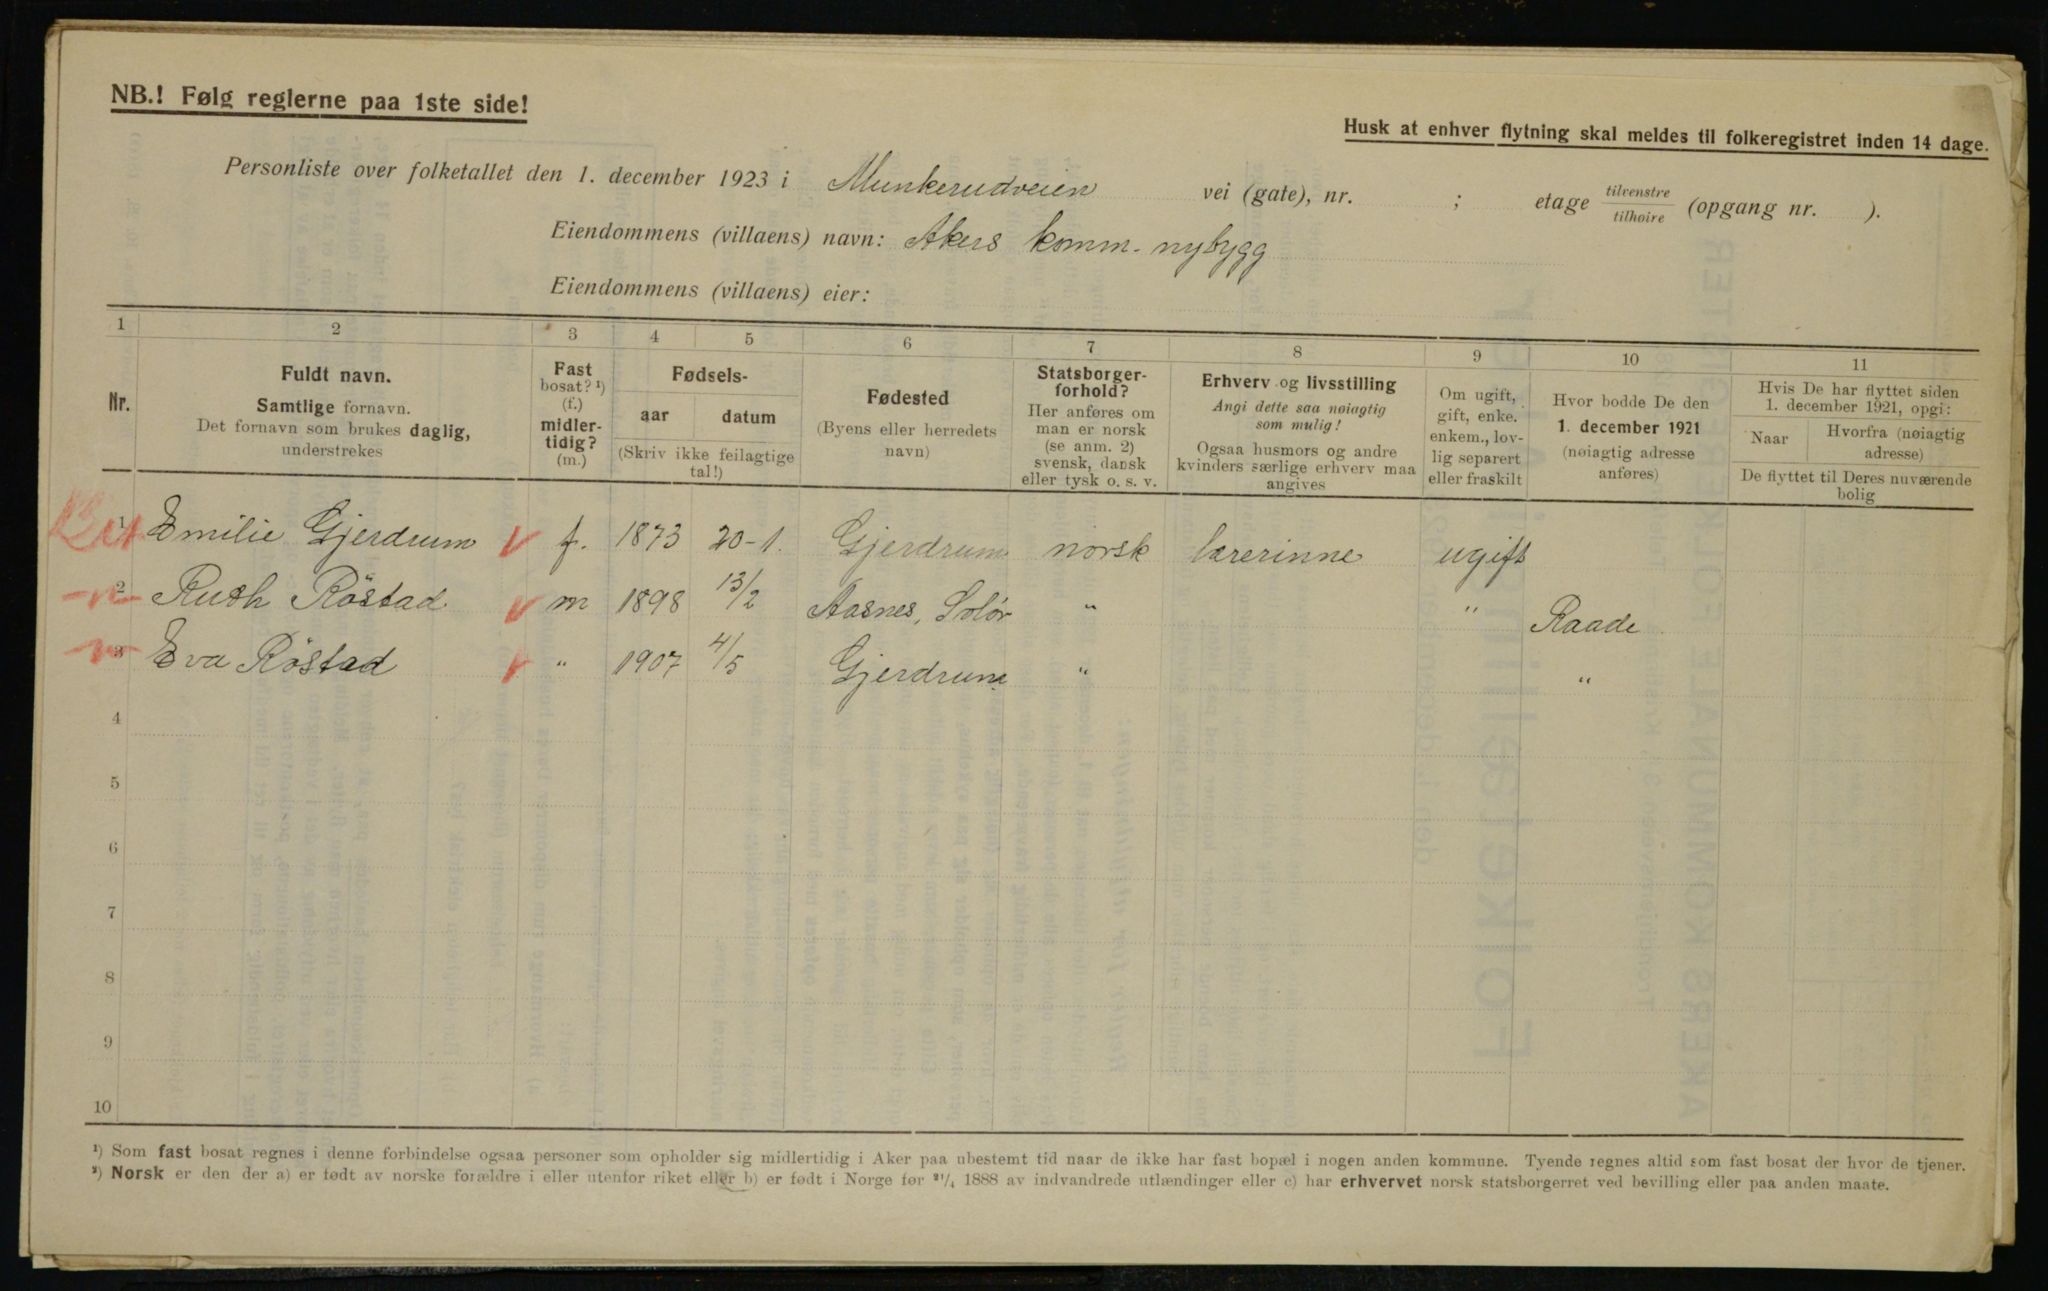 NB.! Følg reglerne paa 1ste side!
Husk at enhver flytning skal meldes til folkeregistret inden 14 dage.
Personliste over folketallet den 1. december 1923 i Munkerudveien vei (gate), nr. ; etage tilvenstre/tilhøire (opgang nr. ).
Eiendommens (villaens) navn: Akers komm. nybygg
Eiendommens (villaens) eier:
1 2 3 4 5 6 7 8 9 10 11
Nr.
Fuldt navn.
Samtlige fornavn.
Det fornavn som brukes daglig,
understrekes
Fast
bosat? ¹)
(f.)
midler-
tidig?
(m.)
Fødsels-
aar datum
(Skriv ikke feilagtige
tal!)
Fødested
(Byens eller herredets
navn)
Statsborger-
forhold?
Her anføres om
man er norsk
(se anm. 2)
svensk, dansk
eller tysk o. s. v.
Erhverv og livsstilling
Angi dette saa nøiagtig
som mulig!
Ogsaa husmors og andre
kvinders særlige erhverv maa
angives
Om ugift,
gift, enke.
enkem., lov-
lig separert
eller fraskilt
Hvor bodde De den
1. december 1921
(nøiagtig adresse
anføres)
Hvis De har flyttet siden
1. december 1921, opgi:
Naar Hvorfra (nøiagtig
adresse)
De flyttet til Deres nuværende
bolig
1 Emilie Gjerdrum f. 1873 20-1. Gjerdrum norsk lærerinne ugift
2 Ruth Röstad m 1898 13/2 Aasnes, Solör " " Raade
3 Eva Röstad " 1907 4/5 Gjerdrum " "
4
5
6
7
8
9
10
¹) Som fast bosat regnes i denne forbindelse ogsaa personer som opholder sig midlertidig i Aker paa ubestemt tid naar de ikke har fast bopæl i nogen anden kommune. Tyende regnes altid som fast bosat der hvor de tjener.
²) Norsk er den der a) er født av norske forældre i eller utenfor riket eller b) er født i Norge før ²¹/₄ 1888 av indvandrede utlændinger eller c) har erhvervet norsk statsborgerret ved bevilling eller paa anden maate.